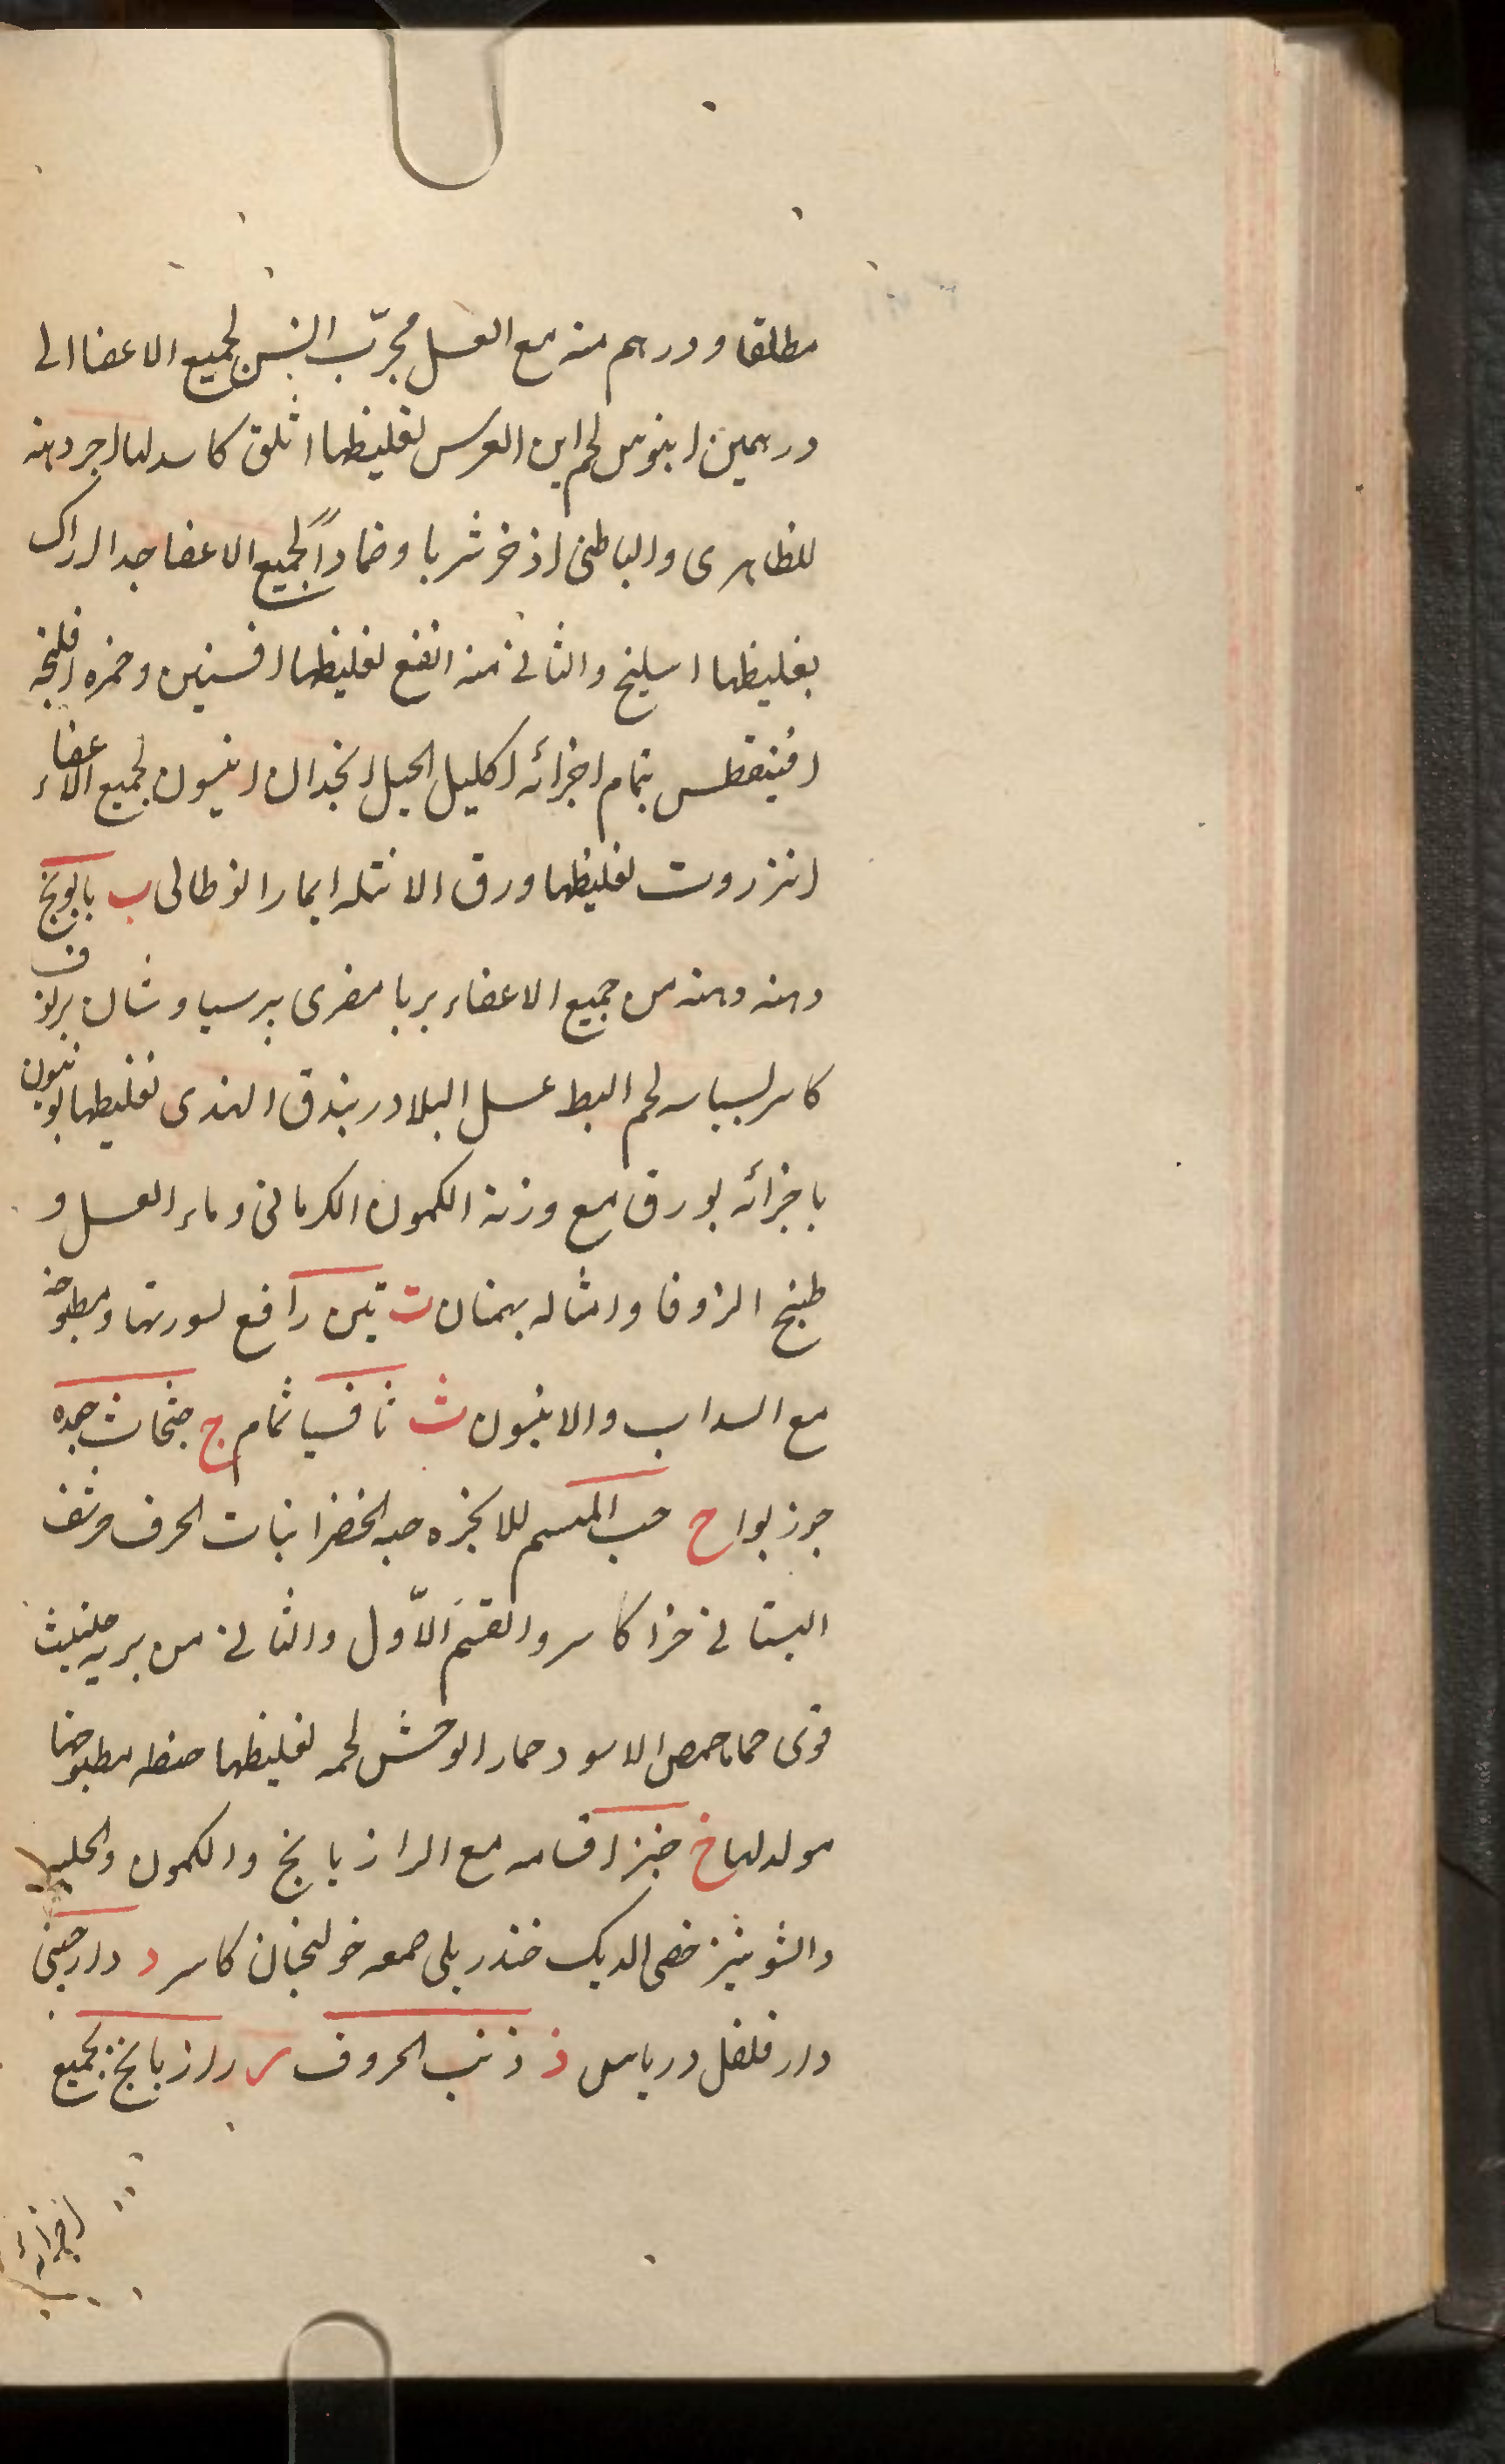 مطلقا و درهم منه مع العسل مجرّب البنس لجميع الاعضا الى
درهمين ابنوس لحم ابن العرس لغليظها اثلق كاسر لها اجر دهنه
للظاهرى والباطنى اذخر شربا وضماداً لجميع الاعضا جدا اراك
بغليظها اسليخ والثانى منه انفع لغليظها افسنتين وخمره افلنجه
افينقطس بتمام اجزائه اكليل الجبل انجدان انيسون لجميع الاعضاء
انزروت لغليظها ورق الانتله ب بابونج
دهنه من جميع الاعضاء بربا مصرى برسياوشان برنوف
كاسر بسباسه لحم البط عسل البلادر بندق الهندى لغليظها بونيون
باجزائه بورق مع وزنة الكمون الكرمانى و ماء العسل و
طبيخ الزوفا وامثاله بهمنان ت تين رافع لسورتها ومطبوخه
مع السداب والانيسون ث ثافسيا ثمام ج جعده
جوز بوا ح حب المسم للابخره حبه الخضرا نبات الحرف حرشف
البستانى حزا كاسر والقسم الاّول والثانى من بريه حلتيث
قوى حماما حمص الاسود حمار الوحش لحمه لغليظها حنطه مطبوخها
مولد لها خ خبز اقسامه مع الرازيانج والكمون والحلبه
والشونيز خصى الديك خندريلى صمغه خولنجان كاسر د دارصينى
دارفلفل درياس ذ ذنب الخروف ر رازيانج لجميع
اجزائه